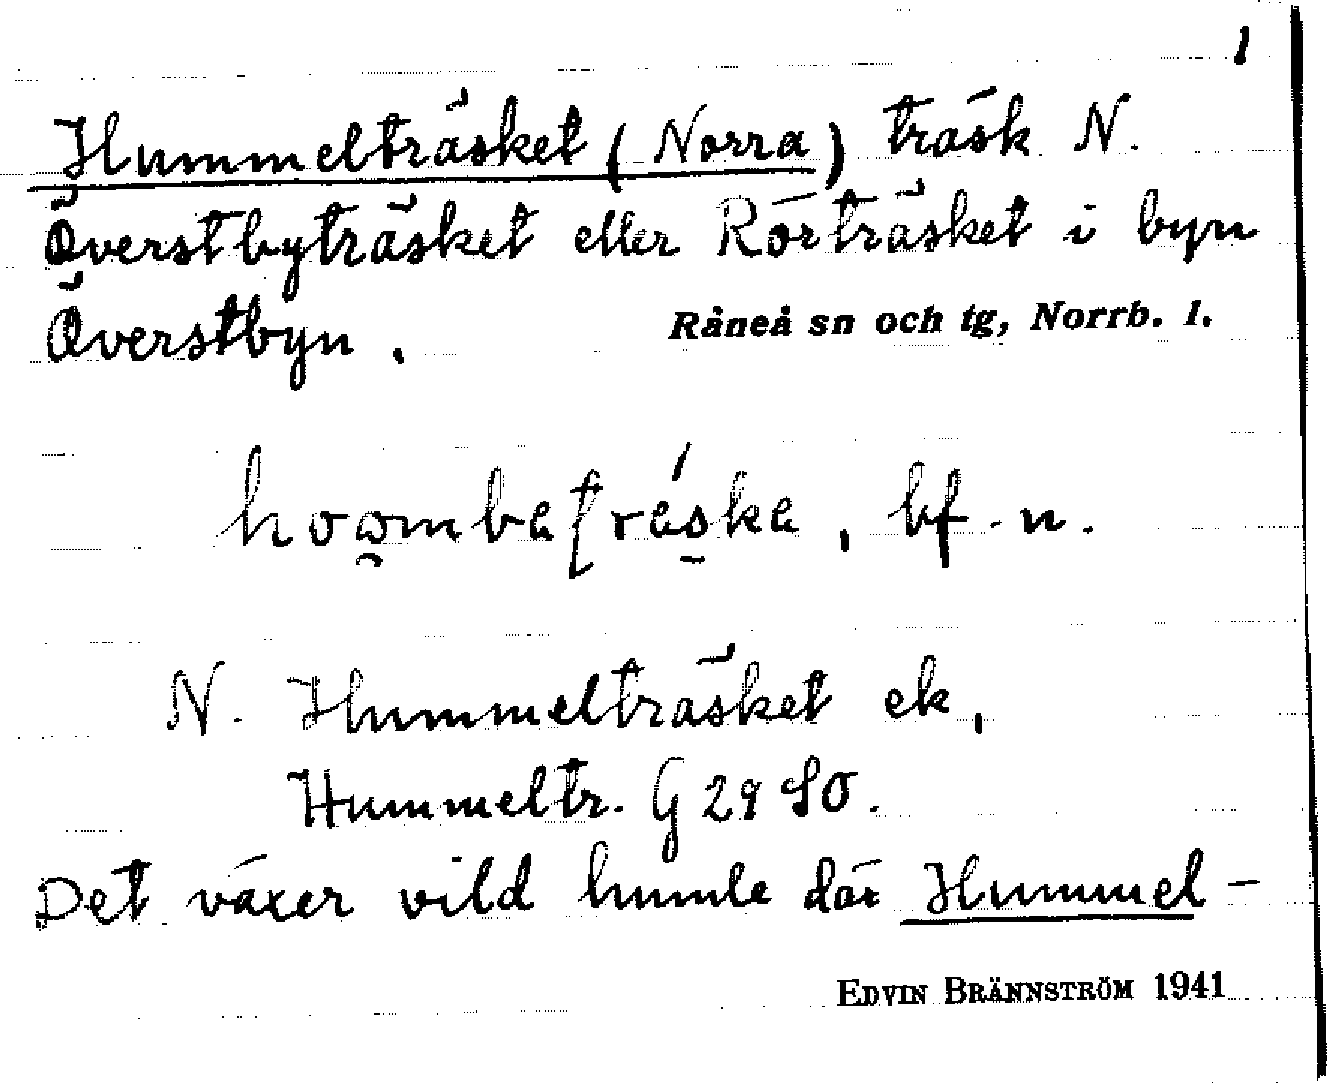 1
Hummelträsket (Norra) träsk N.
Överstbyträsket eller Rörträsket i byn
Överstbyn.
Råneå sn och tg, Norrb. l.
bf. n.
N. Hummelträsket ek,
Hummeltr. G 29 SO.
Det växer vild humle där Hummel-
EDVIN BRÄNNSTRÖM 1941